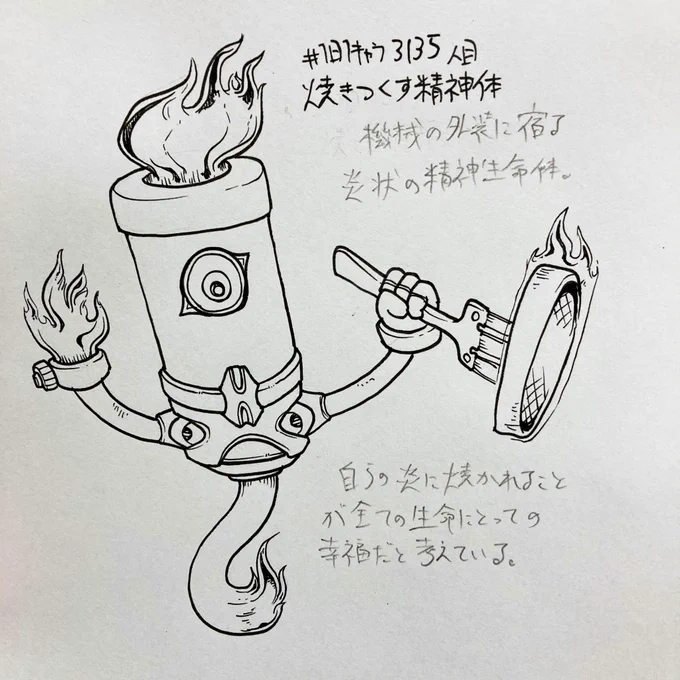 #1日1キャラ3135人目
焼きつくす精神体
機械の外装に宿る
炎状の精神生命体。
自らの炎に焼かれること
が全ての生命にとっての
幸福だと考えている。